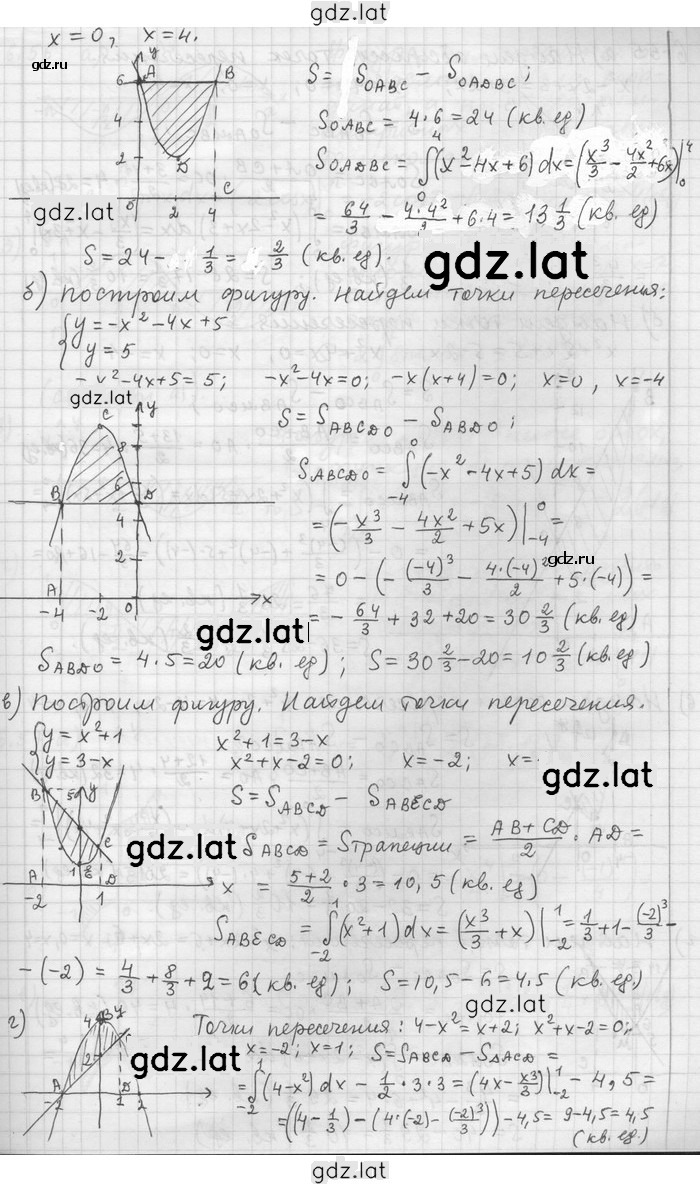 gdz.lat
x = 0, x = 4.
gdz.ru
y
6 A B
4
2 D C
0 2 4
S = S_OABC − S_OADBC ;
S_OABC = 4·6 = 24 (кв. ед)
S_OADBC = ∫₀⁴ (x² − 4x + 6) dx = (x³/3 − 4x²/2 + 6x) |₀⁴
= 64/3 − 4·4²/ + 6·4 = 13 1/3 (кв. ед)
gdz.lat
S = 24 − 1/3 = 2/3 (кв. ед).
gdz.lat
б) Построим фигуру. Найдем точки пересечения:
{ y = −x² − 4x + 5
y = 5
−x² − 4x + 5 = 5; −x² − 4x = 0; −x(x+4) = 0; x = 0, x = −4
gdz.lat
C y
8
6
B D
4
2
A
−4 −2 0 x
S = S_ABCDO − S_ABDO ;
S_ABCDO = ∫₋₄⁰ (−x² − 4x + 5) dx =
= (−x³/3 − 4x²/2 + 5x) |₋₄⁰ =
gdz.ru
= 0 − (−(−4)³/3 − 4·(−4)²/2 + 5·(−4)) =
= −64/3 + 32 + 20 = 30 2/3 (кв. ед)
gdz.lat
S_ABDO = 4·5 = 20 (кв. ед); S = 30 2/3 − 20 = 10 2/3 (кв. ед)
в) Построим фигуру. Найдем точки пересечения.
{ y = x² + 1
y = 3 − x
x² + 1 = 3 − x
x² + x − 2 = 0; x = −2; x =
gdz.lat
B 5 y
C
A 1 E D
−2 1 x
S = S_ABCD − S_ABECD
gdz.lat
S_ABCD = Sтрапеции = (AB + CD)/2 · AD =
= (5+2)/2 · 3 = 10,5 (кв. ед)
S_ABECD = ∫₋₂¹ (x² + 1) dx = (x³/3 + x) |₋₂¹ = 1/3 + 1 − (−2)³/3 −
− (−2) = 4/3 + 8/3 + 2 = 6 (кв. ед); S = 10,5 − 6 = 4,5 (кв. ед.)
gdz.lat
г)
4 B y
2 C
A D
−2 1 2
Точки пересечения: 4 − x² = x + 2; x² + x − 2 = 0;
gdz.lat
x = −2; x = 1; S = S_ABCD − S_ΔACD =
= ∫₋₂¹ (4 − x²) dx − 1/2 · 3 · 3 = (4x − x³/3) |₋₂¹ − 4,5 =
= ((4 − 1/3) − (4·(−2) − (−2)³/3)) − 4,5 = 9 − 4,5 = 4,5
(кв. ед.)
gdz.lat